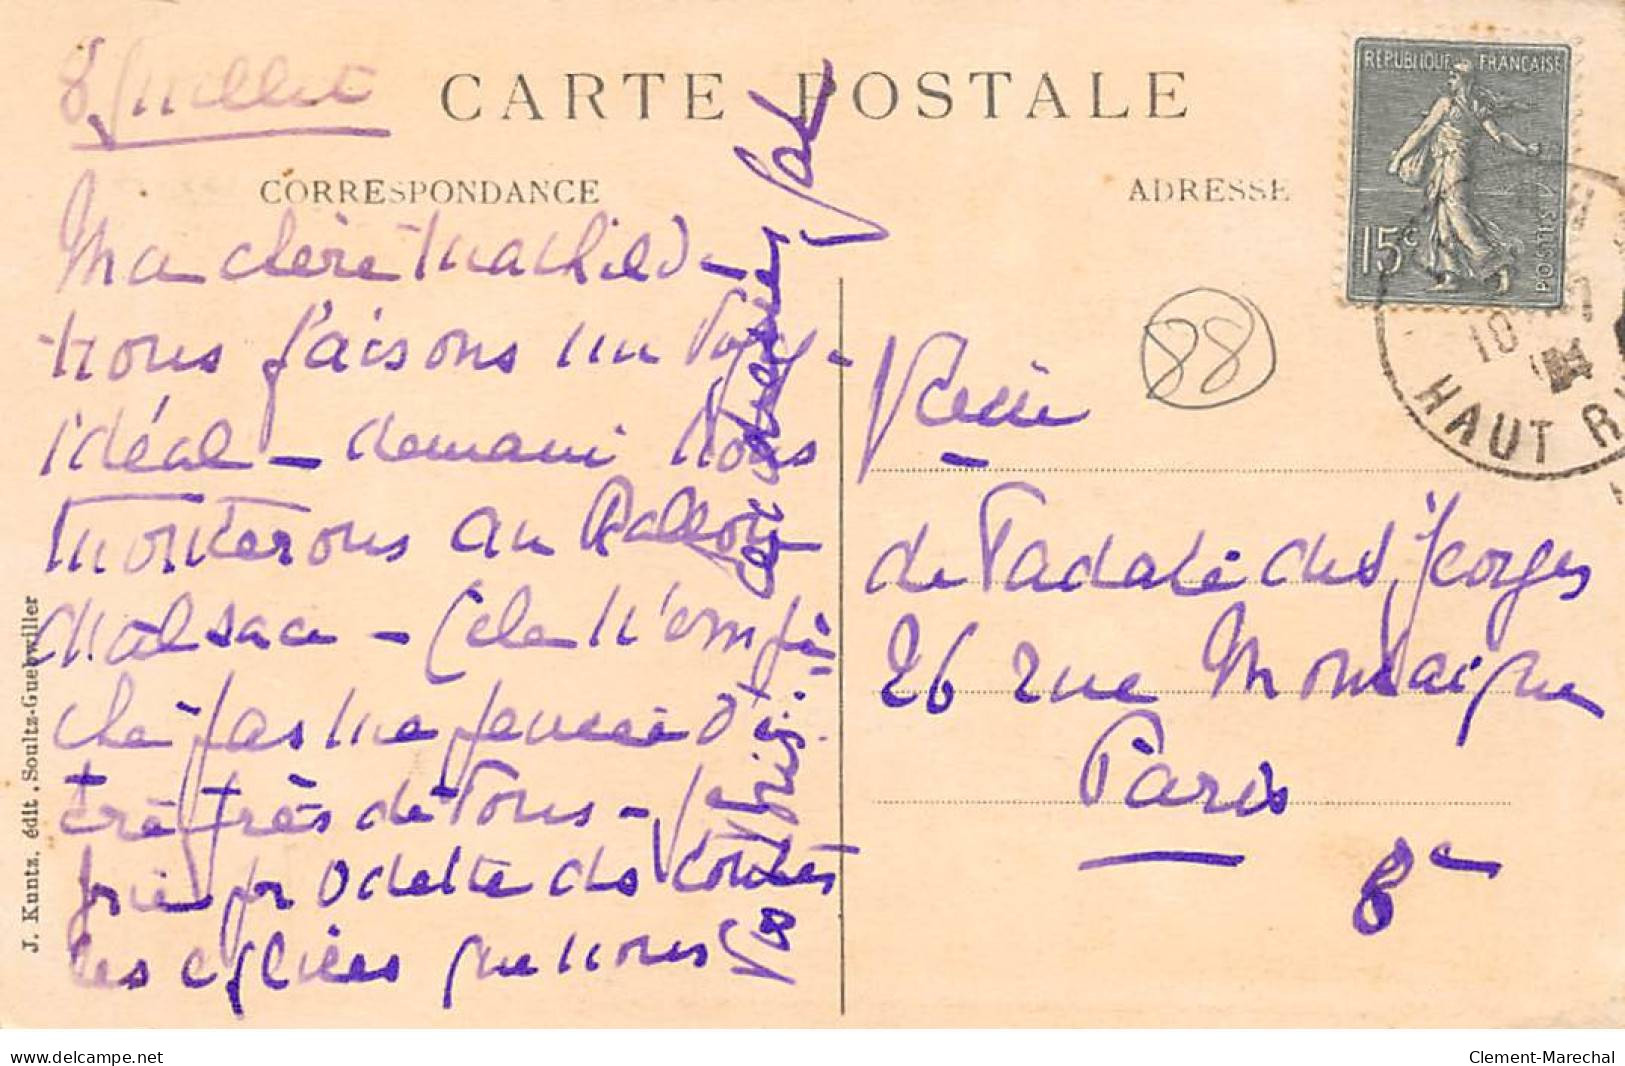 8 Juillet
CARTE POSTALE
CORRESPONDANCE
ADRESSE
RÉPUBLIQUE FRANÇAISE
15c
POSTES
10
HAUT R
88
Ma chère Mathilde
nous faisons un voyage
idéal — demain nous
monterons au Ballon
d'alsace — Cela n'empê
che pas ma pensée d'ê
tre près de vous — Je
prie pr Odette ds toutes
les églises que nous
de des Georges
26 rue Montaigne
Paris
8e
J. Kuntz, édit, Soultz-Guebwiller
www.delcampe.net
Clement-Marechal